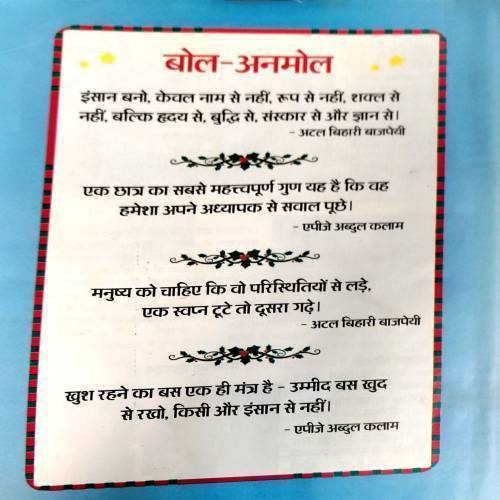 बोल-अनमोल
इंसान बनो, केवल नाम से नहीं, रूप से नहीं, शक्ल से
नहीं, बल्कि हृदय से, बुद्धि से, संस्कार से और ज्ञान से।
- अटल बिहारी बाजपेयी
एक छात्र का सबसे महत्त्वपूर्ण गुण यह है कि वह
हमेशा अपने अध्यापक से सवाल पूछे।
- एपीजे अब्दुल कलाम
मनुष्य को चाहिए कि वो परिस्थितियों से लड़े,
एक स्वप्न टूटे तो दूसरा गढ़े।
- अटल बिहारी बाजपेयी
खुश रहने का बस एक ही मंत्र है - उम्मीद बस खुद
से रखो, किसी और इंसान से नहीं।
- एपीजे अब्दुल कलाम